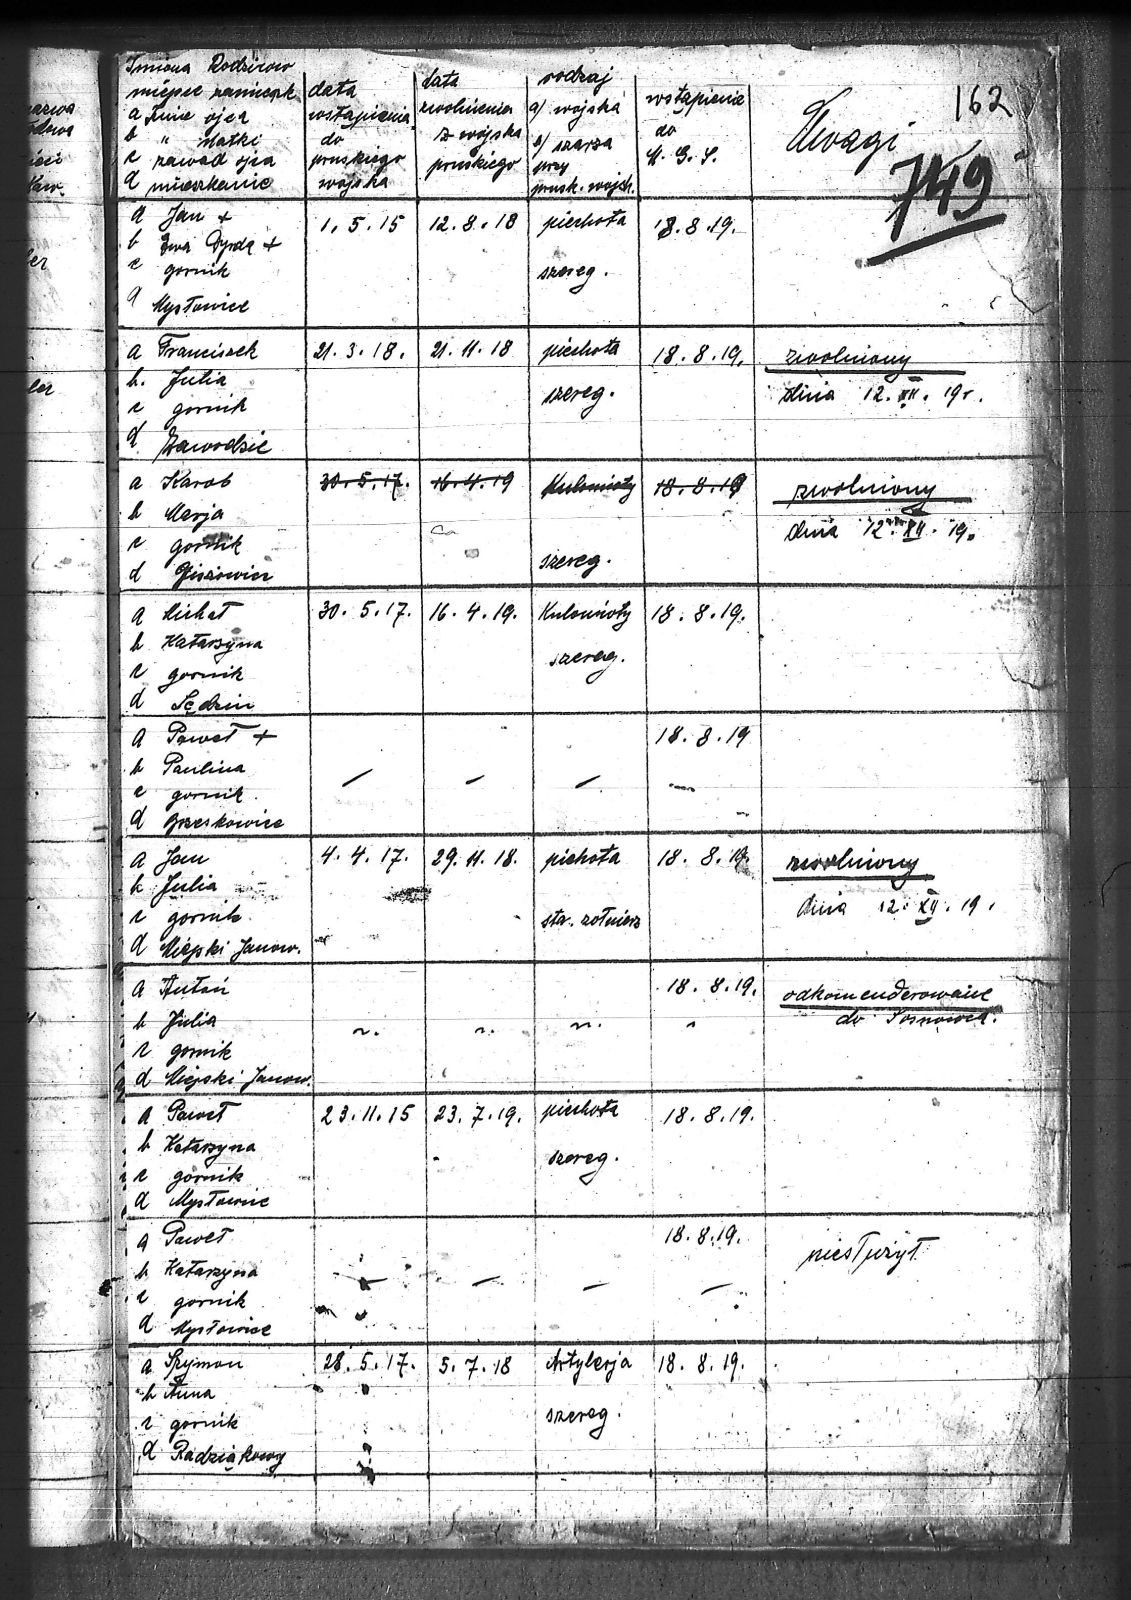 Imiona Rodziców
miejsc zamieszk
a Imie ojca
b " Matki
c zawód ojca
d mieszkanie
data
wstąpienia
do
pruskiego
wojska
data
zwolnienia
z wojska
pruskiego
rodzaj
a) wojska
b) szarza
przy
prusk. wojsk.
wstąpienie
do
M. G. S.
Uwagi
162
749
a Jan + 1. 5. 15 12. 8. 18 piechota 18. 8. 19.
b Ewa Dyrda +
c gornik szereg.
d Mysłowice
a Franciszek 21. 3. 18. 21. 11. 18 piechota 18. 8. 19. zwolniony
b. Julia szereg. dnia 12. XII. 19r.
c gornik
d Zawodzie
a Karob 30. 5. 17. 16. 4. 19 Kulomioty 18. 8. 19 zwolniony
b Marja dnia 12. XII. 19.
c gornik szereg.
d Giszowiec
a Michał 30. 5. 17. 16. 4. 19. Kulomioty 18. 8. 19.
b Katarzyna szereg.
c gornik
d Lędzin
a Paweł + 18. 8. 19
b Paulina — — — —
c gornik.
d Brzeskowice
a Jan 4. 4. 17. 29. 11. 18. piechota 18. 8. 19. zwolniony
b Julia
c gornik. sta. zołnierz dnia 12. XII. 19.
d Miejski Janow.
a Antoń 18. 8. 19. odkomenderowanie
b Julia do Sosnowca.
c gornik
d Miejski Janow.
a Paweł 23. 11. 15 23. 7. 19. piechota 18. 8. 19.
b Katarzyna szereg.
c górnik
d Mysłowice
a Paweł 18. 8. 19.
b Katarzyna — — — — niesłużył
c gornik
d Mysłowice
a Szymon 28. 5. 17. 5. 7. 18 Artylerja 18. 8. 19.
b Anna
c gornik szereg.
d Radziąkowy